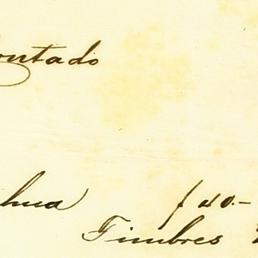 ontado
hua $ 40.-
Timbres